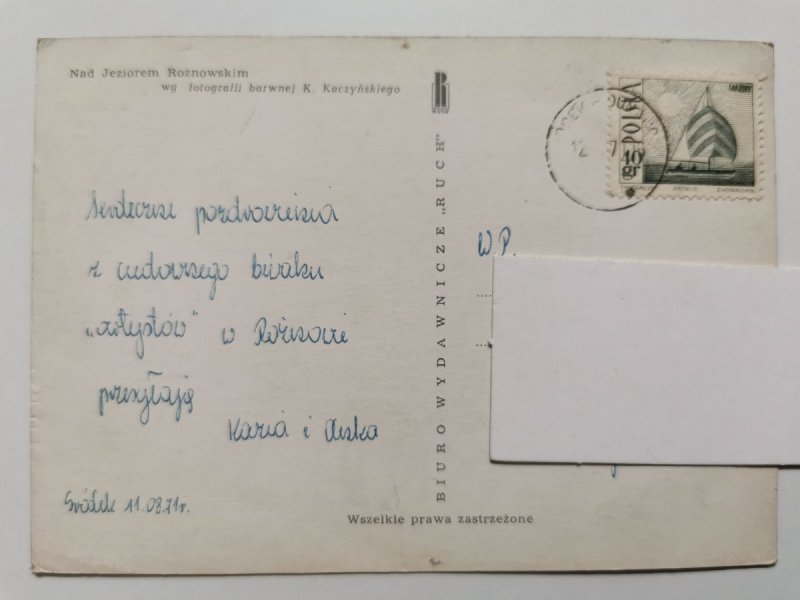 Nad Jeziorem Rożnowskim
wg fotografii barwnej K. Kaczyńskiego
RUCH
POLSKA
MAZURY
40 gr
12
Serdeczne pozdrowienia
z cudownego biwaku
„artystów" w Rożnowie
przesyłają
Kazia i
11.08.71r.
W.P.
BIURO WYDAWNICZE „RUCH"
Wszelkie prawa zastrzeżone